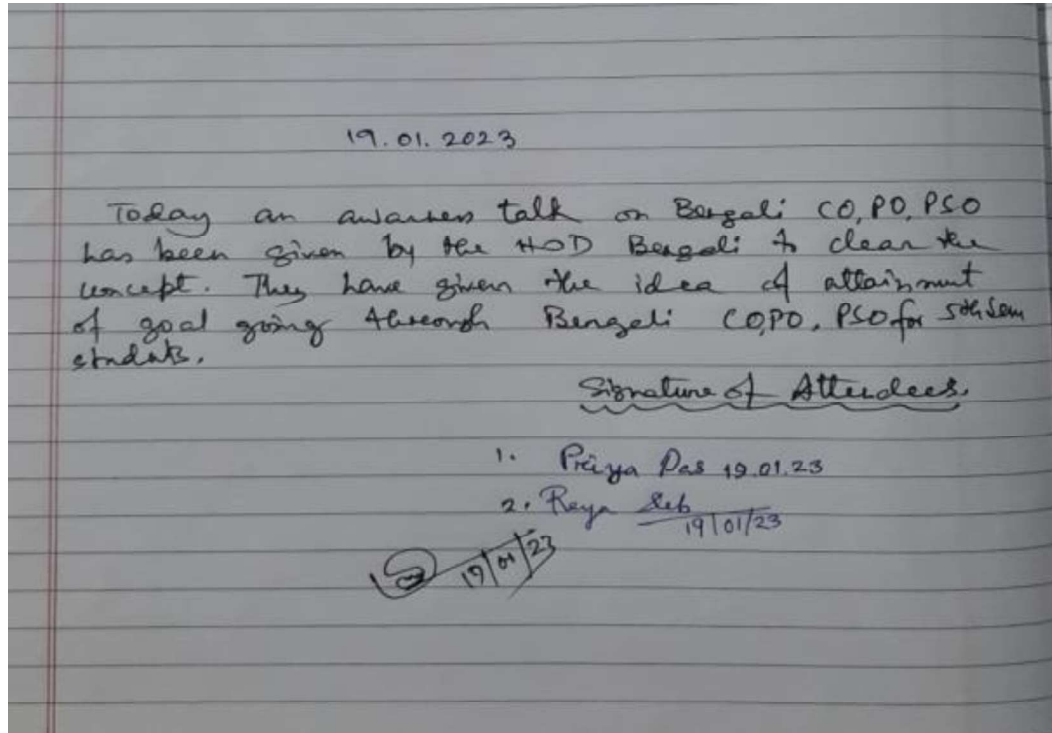 19.01.2023
Today an awarness talk on Bengali CO, PO, PSO
has been given by the HOD Bengali to clear the
concept. They have given the idea of attainment
of goal going through Bengali CO,PO, PSO for 5th Sem
students.
Signature of Attendees.
1. Priya Das 19.01.23
2. Reya Deb
19/01/23
19/01/23